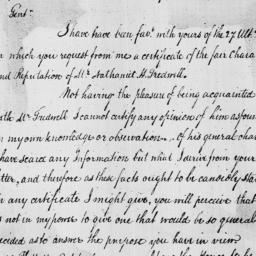 Gent:
I have have been fav.d with yours of the 27 Ult.
n which you request from me a certificate of the fair Chara
nd Reputation of Mr. Nathaniel H. Tredwell.
Not having the pleasure of being acquainted
ith Mr. Tredwell I cannot certify any opinion of him as foun
n my own knowledge or observation. Of his general char
have scarce any Information but what I derive from your
tter, and therefore as these facts ought to be candidly sta
n any certificate I might give, you will perceive that
s not in my power to give one that would be so genera
eceded as to answer the purpose you have in view